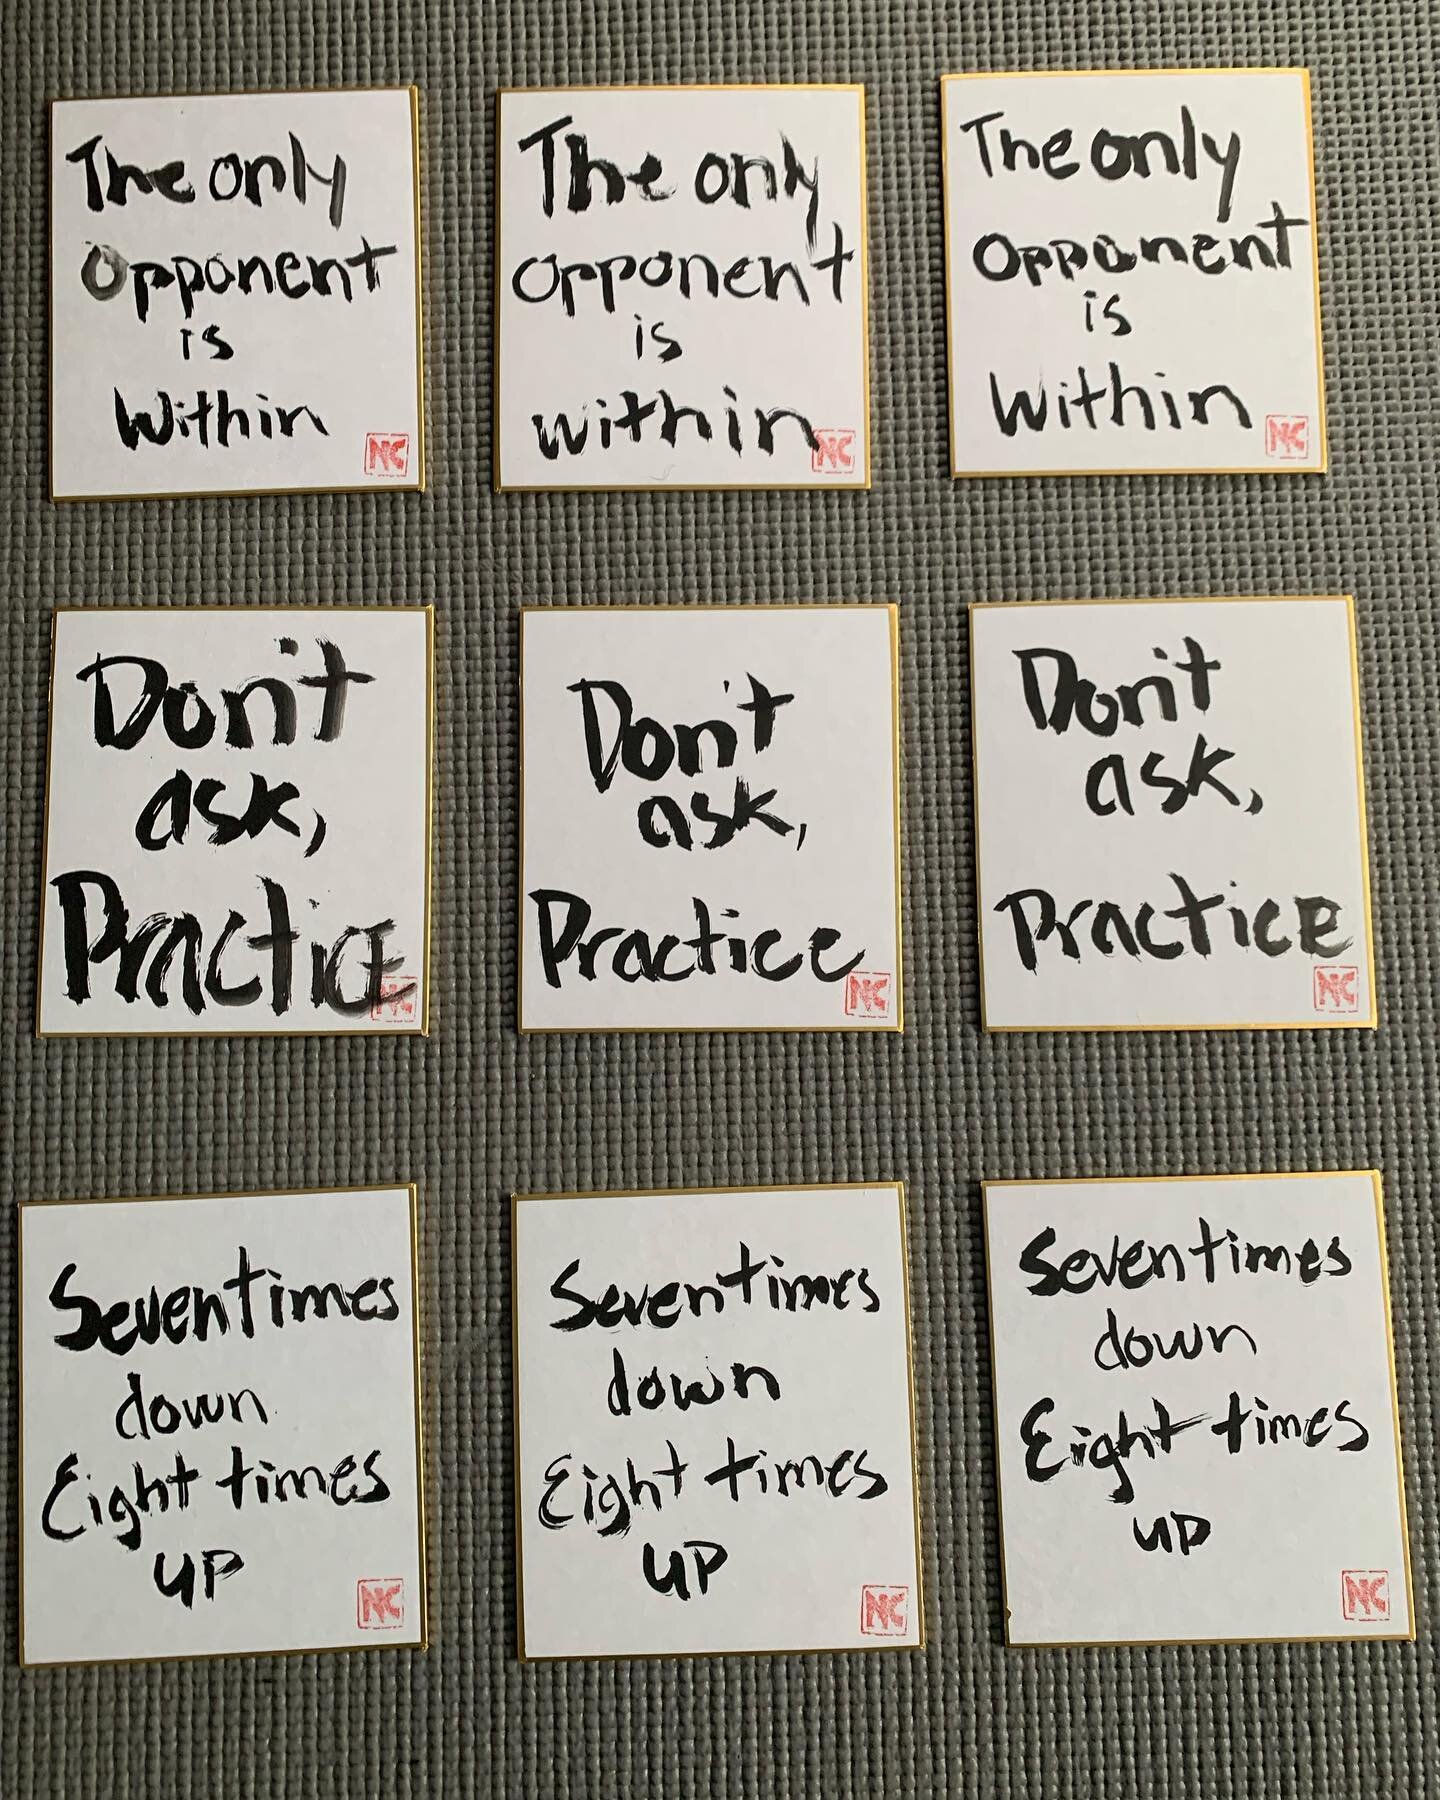 The only
Opponent
is
Within
NC
The only
Opponent
is
within
NC
The only
Opponent
is
Within
NC
Don't
ask,
Practice
NC
Don't
ask,
Practice
NC
Don't
ask,
Practice
NC
Seven times
down
Eight times
up
NC
Seven times
down
Eight times
up
NC
Seven times
down
Eight times
up
NC